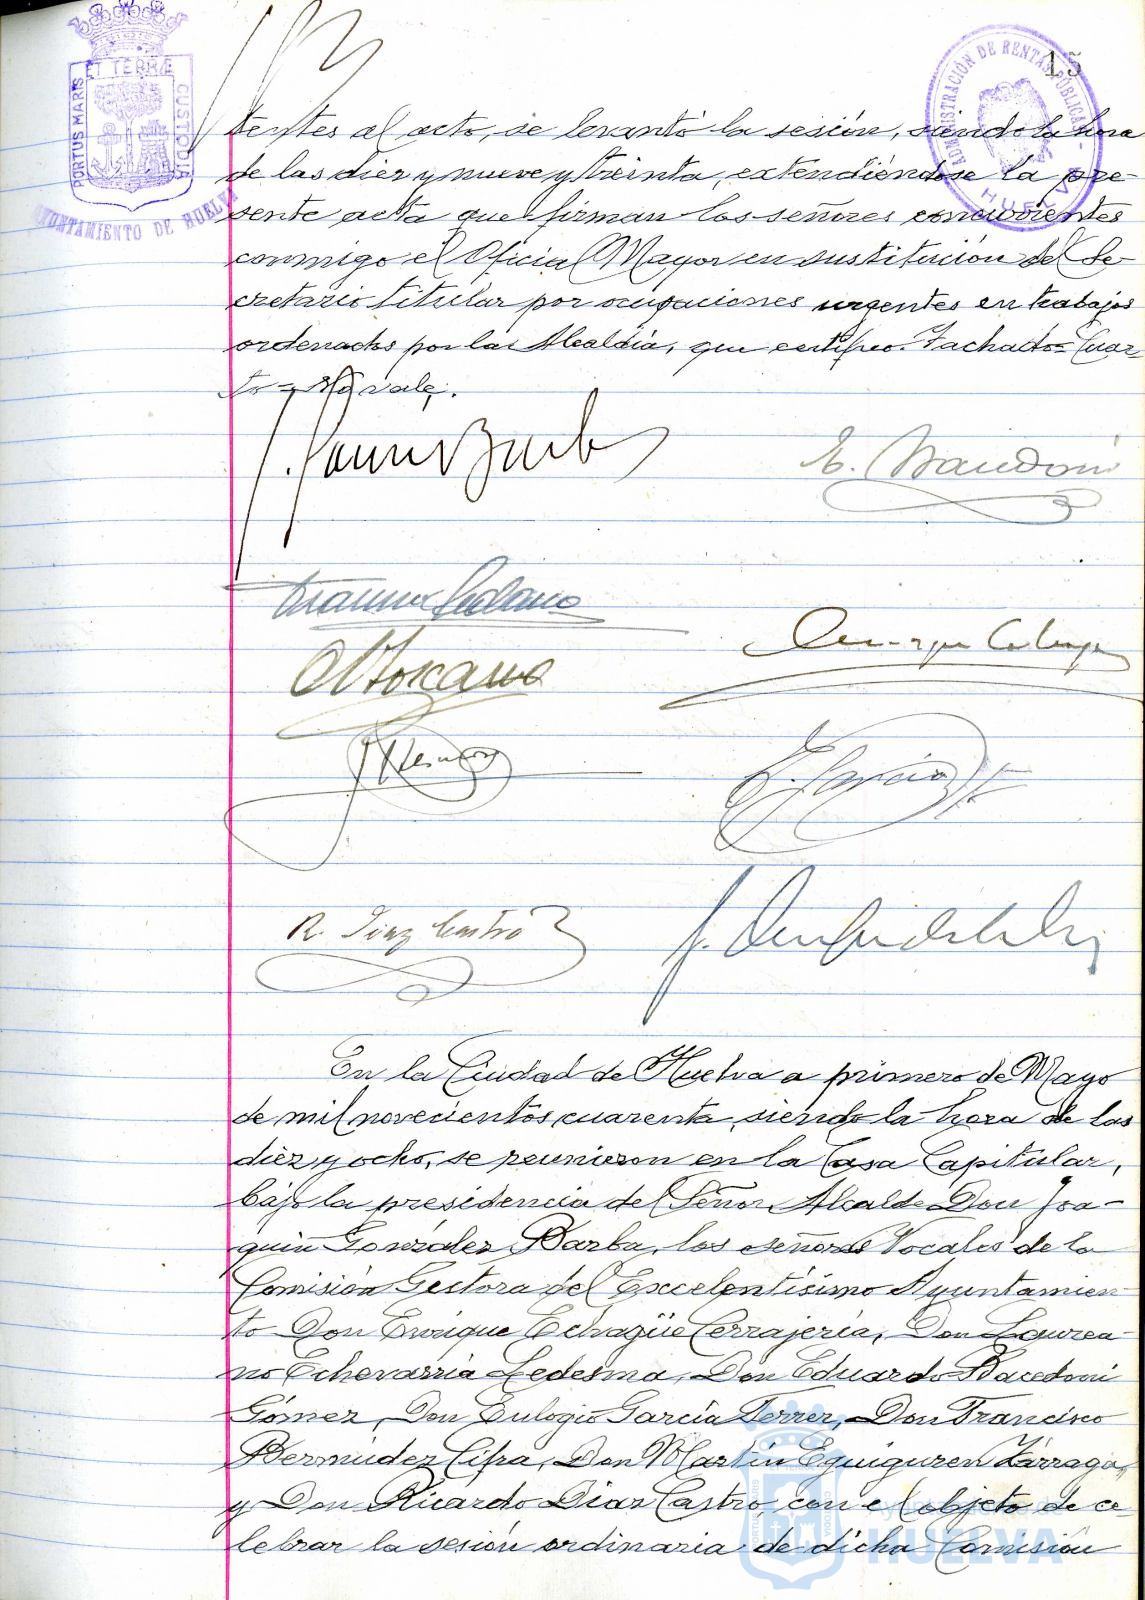 PORTUS MARIS ET TERRÆ CUSTODIA
AYUNTAMIENTO DE HUELVA
ADMINISTRACIÓN DE RENTAS PÚBLICAS
HUELVA
15
tentes al acto, se levantó la sesión, siendo la hora
de las diez y nueve y treinta, extendiéndose la pre-
sente acta que firman los señores concurrentes
conmigo el Oficial Mayor en sustitución del Se-
cretario titular por ocupaciones urgentes en trabajos
ordenados por la Alcaldía, que certifico. Tachado= Cuar-
to = No vale.
R. Diaz Castro
En la Ciudad de Huelva a primero de Mayo
de mil novecientos cuarenta, siendo la hora de las
diez y ocho, se reunieron en la Casa Capitular,
bajo la presidencia del Señor Alcalde Don Joa-
quín González Barba, los señores Vocales de la
Comisión Gestora del Excelentísimo Ayuntamien-
to Don Enrique Echagüe Cerrajería, Don Laurea-
no Echevarría Ledesma, Don Eduardo Macedoni
Gómez, Don Eulogio García Ferrer, Don Francisco
Bermúdez Cifra, Don Martín Eguiguren Zárraga,
y Don Ricardo Diaz Castro, con el objeto de ce-
lebrar la sesión ordinaria de dicha Comisión
Ayuntamiento de
HUELVA